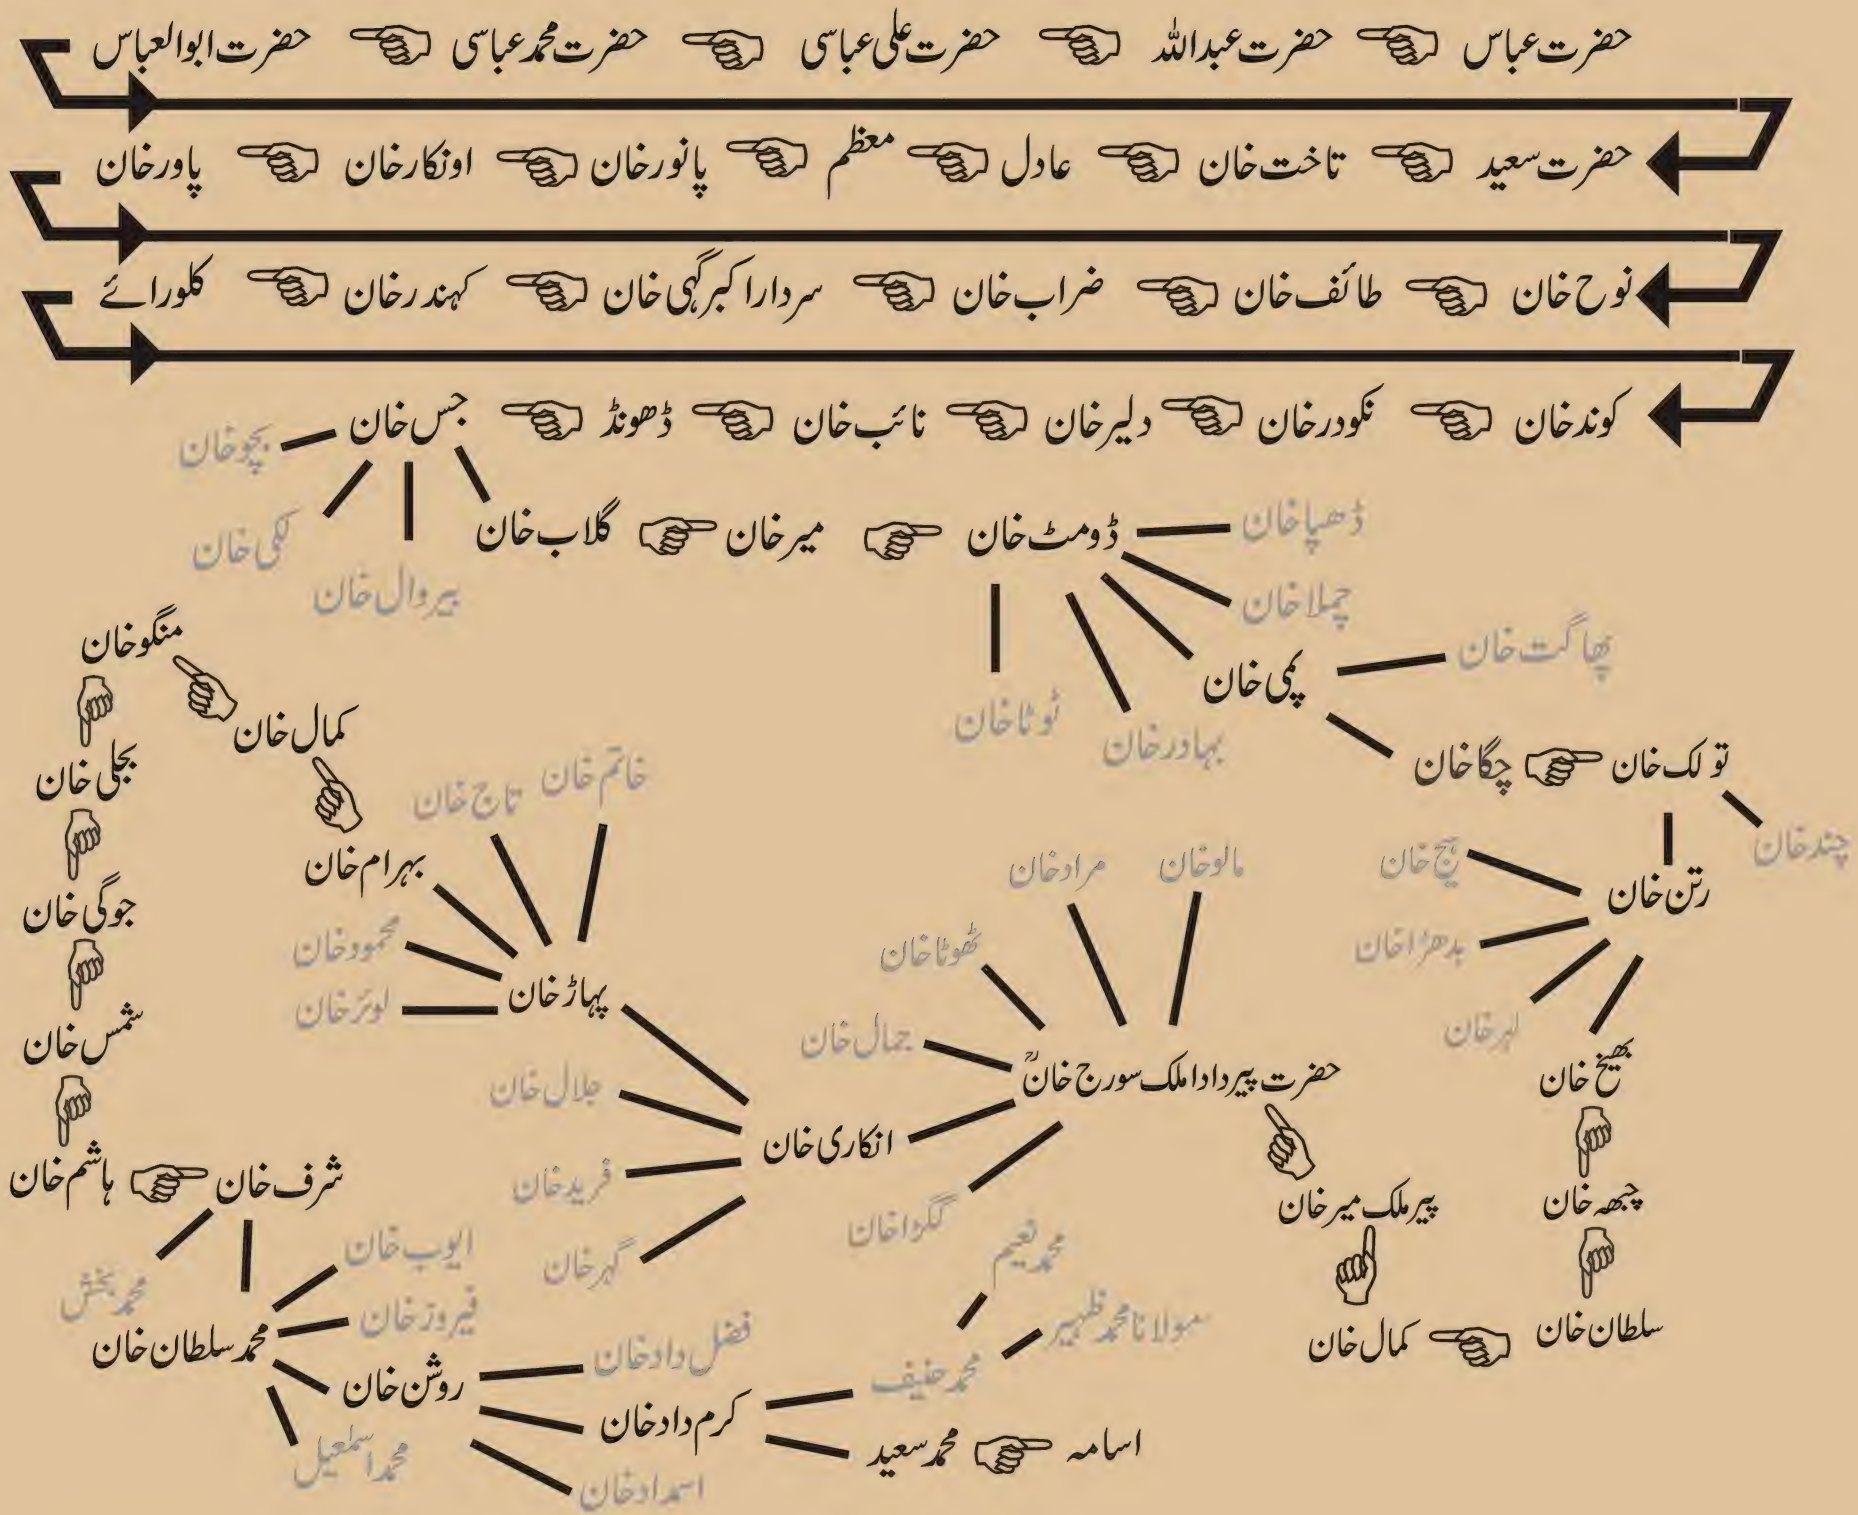 حضرت عباس حضرت عبداللہ حضرت علی عباسی حضرت محمد عباسی حضرت ابوالعباس
حضرت سعید تاخت خان عادل معظم پانور خان اونکار خان پاور خان
نوح خان طائف خان ضراب خان سردار اکبر گہی خان کہندر خان کلورائے
کوند خان نکودر خان دلیر خان نائب خان ڈھونڈ جس خان
بچو خان
گلاب خان میر خان ڈومٹ خان
ڈھپا خان
بیروال خان
چملا خان
ٹوٹا خان
بہادر خان
پمی خان
پھاگت خان
چگا خان تولک خان
چند خان
رتن خان
ہیج خان
بدھڑا خان
لہر خان
بھیخ خان
چبھہ خان
سلطان خان
کمال خان
پیر ملک میر خان
حضرت پیر دادا ملک سورج خانؒ
مالو خان
مراد خان
ٹھوٹا خان
جمال خان
انکاری خان
ککڑا خان
پہاڑ خان
جلال خان
فرید خان
گہر خان
خاتم خان
تاج خان
بہرام خان
محمود خان
لوئر خان
کمال خان
منگو خان
بجلی خان
جوگی خان
شمس خان
ہاشم خان شرف خان
محمد بخش
محمد سلطان خان
ایوب خان
فیروز خان
روشن خان
محمد اسمٰعیل
فضل داد خان
کرم داد خان
اسمداد خان
محمد حنیف
محمد نعیم
مولانا محمد ظہیر
محمد سعید اسامہ